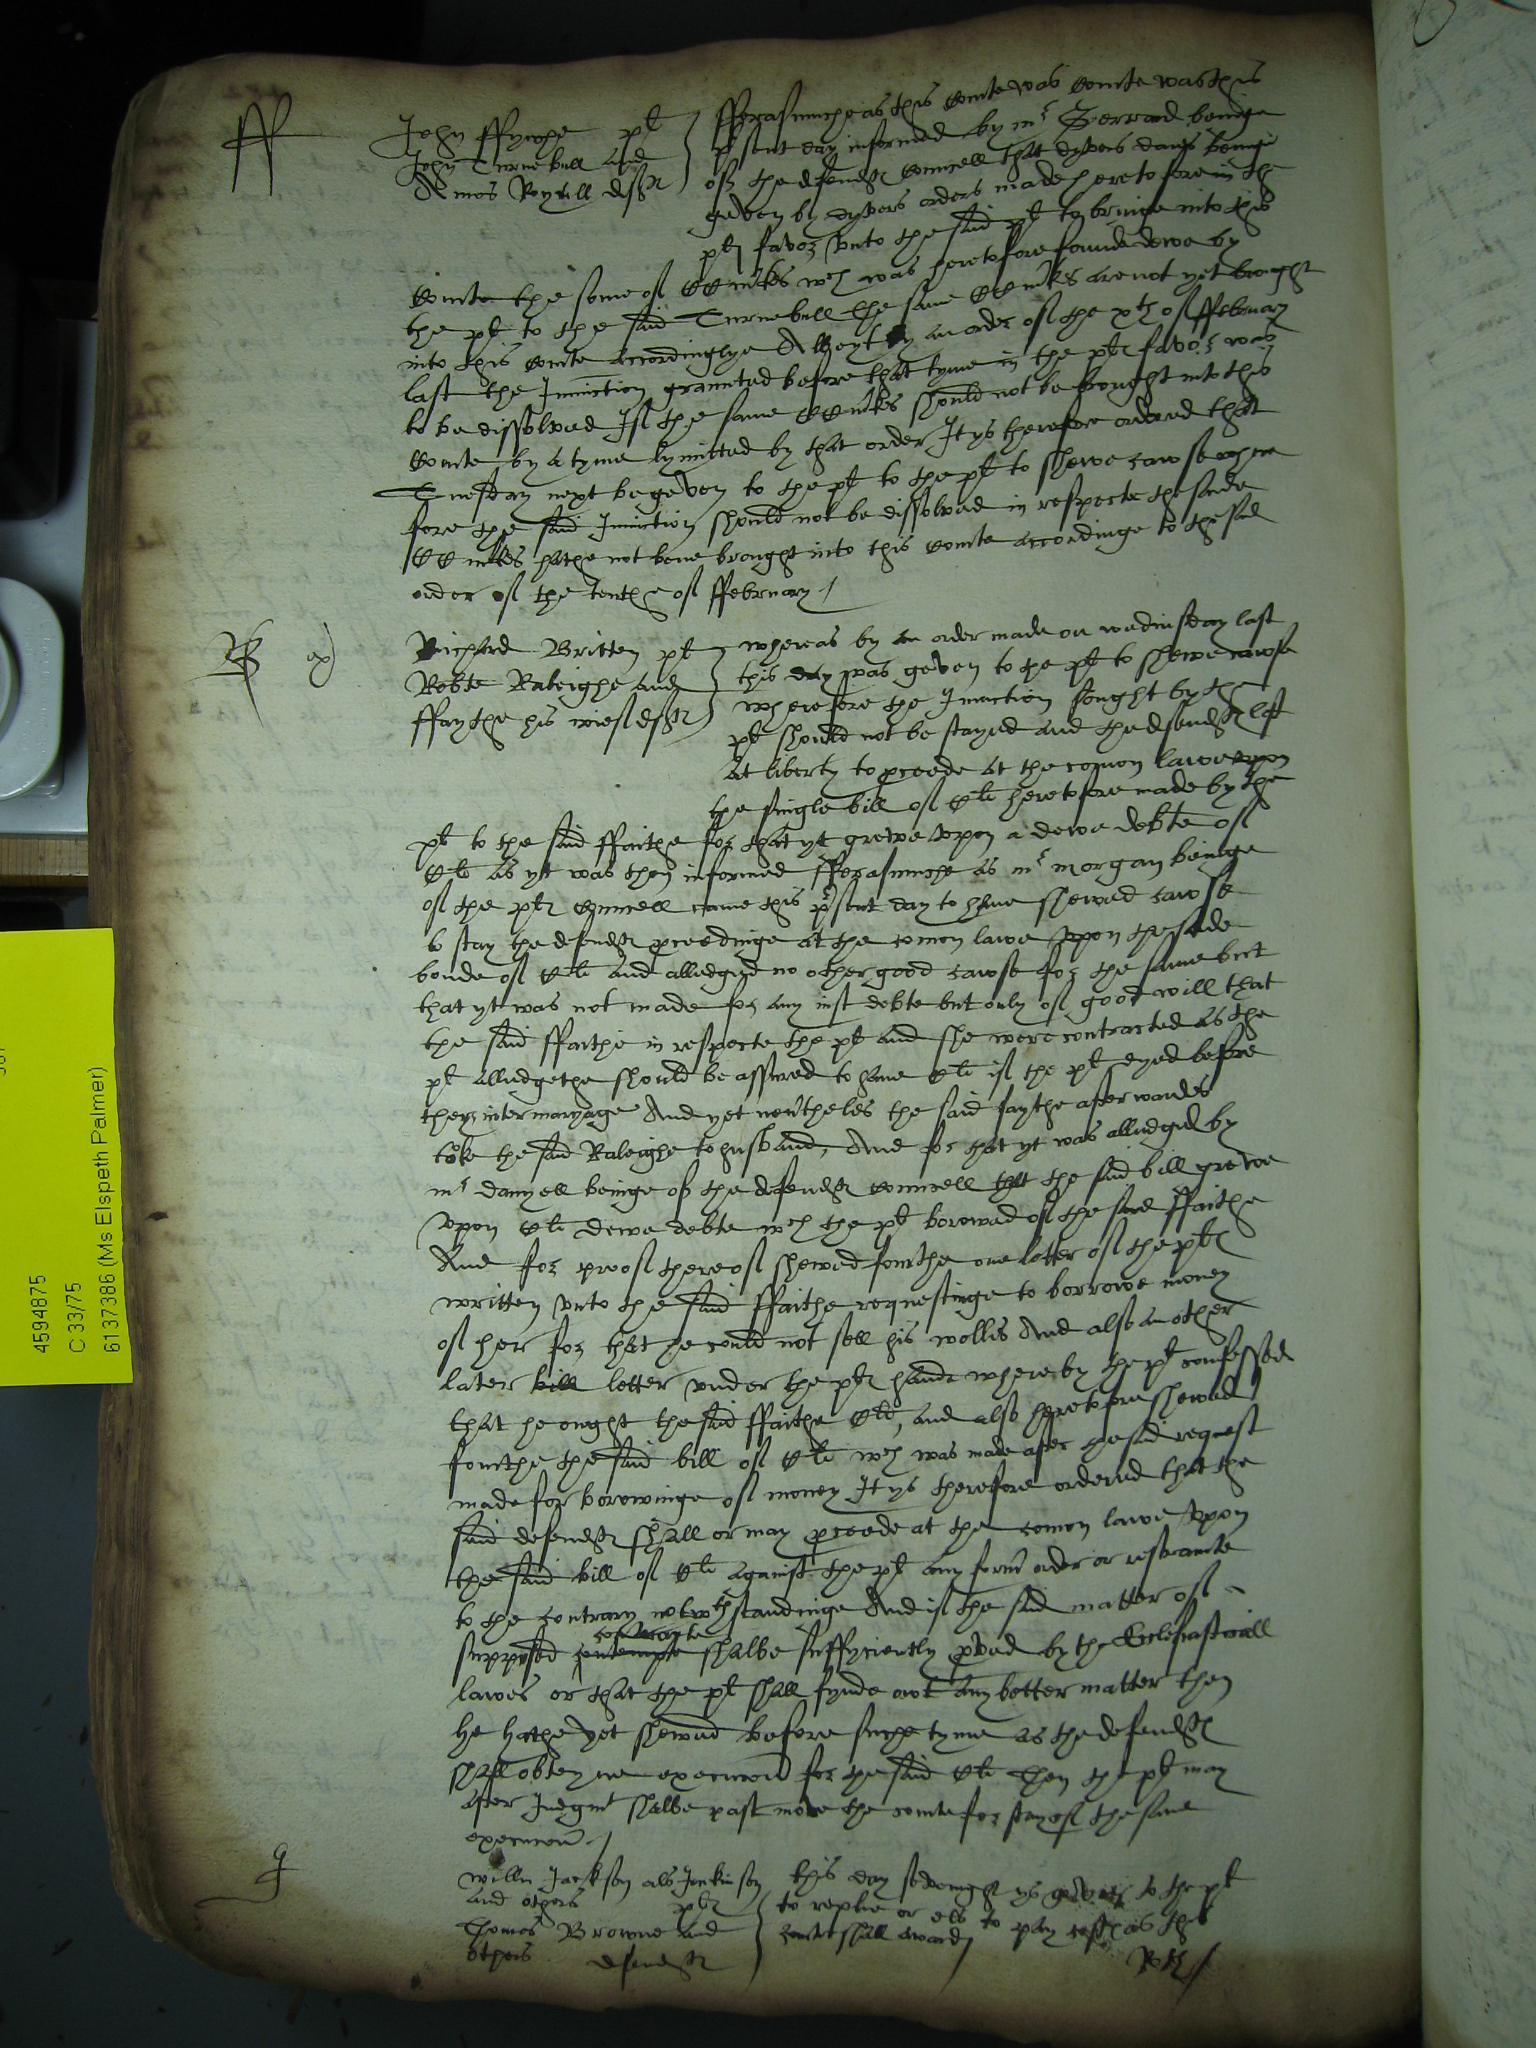 ff
John ffynche pt
John Turnebull and
Amos Reyvell deftes
fforasmuche as this Courte was Courte was this
present day informed by mr Gerrard beinge
of the defendtes Councell that dyvers dayes beinge
geven by dyvers orders made heretofore in the
ptes favor unto the said pt to bringe into this
Courte the some of CC mkes wch was heretofore founde dewe by
the pt to the said Turnebull the same CC mkes are not yet brought
into this Courte accordinglye Albeyt by an order of the xth of ffebruary
last the Iniunction graunted before that tyme in the ptes favor was
to be dissolved If the same CC mkes should not be brought into this
Courte by a tyme lymitted by that order It ys therefore ordered that
Tuesday next be geven to the pt to the pt to shewe cawse where
fore the said Iniunction should not be dissolved in respecte the saide
CC mkes hathe not bene brought into this Courte accordinge to the said
order of the tenthe of ffebruary /
ex)
Richard Britten pt
Robte Raleighe and
ffaythe his wief deftes
whereas by an order made on wednisday last
this day was geven to the pt to shewe cawse
wherefore the Iniunction sought by the
pt should not be stayed and the defendtes left
at liberty to procede at the comon lawe upon
the single bill of Cli heretofore made by the
pt to the said ffaithe for that yt grewe upon a dewe debte of
Cli as yt was then informed fforasmuche as mr morgan beinge
of the ptes Councell came this present day to have shewed cawse
to stay the defendtes procedinge at the comon lawe upon the saide
bonde of Cli and alledged no other good cawse for the same but
that yt was not made for any iust debte but only of good will that
the said ffaithe in respecte the pt and she were contracted as the
pt alledgethe should be assured to have Cli if the pt dyed before
their intermaryage And yet nevtheles the said faythe afterwardes
toke the said Raleighe to husband, And for that yt was alledged by
mr danyell beinge of the defendtes Councell that the said bill grewe
upon Cli dewe debte wch the pt borowed of the said ffaithe
And for proof thereof shewed fourthe one letter of the ptes
written unto the said ffaithe requestinge to borrowe money
of her for that he could not sell his wolles And also an other
later bill letter under the ptes hande whereby the pt confessed
that he ought the said ffaithe Cli, and also heretofore shewed
fourthe the said bill of Cli wch was made after the said request
made for borowinge of money It ys therefore ordered that the
said defendtes shall or may procede at the comon lawe upon
the said bill of Cli against the pt any former order or restrainte
to the contrary notwthstandinge And if the said matter of
supposed contempte contracte shalbe suffyciently proved by the Ecclesiasticall
lawes or that the pt shall fynde owt any better matter then
he hathe yet shewed before suche tyme as the defendtes
shall obteyne execucion for the said Cli Then the pt may
after Iudgmt shalbe past move the courte for stay of the same
execucion /
willm Jackson als Jenkinson
and others ptes
Thomas Browne and
others defendtes
this day sevenight ys geven to the pt
to replie or els to pay costes as this
courte shall award /
4594875
C 33/75
6137386 (Ms Elspeth Palmer)